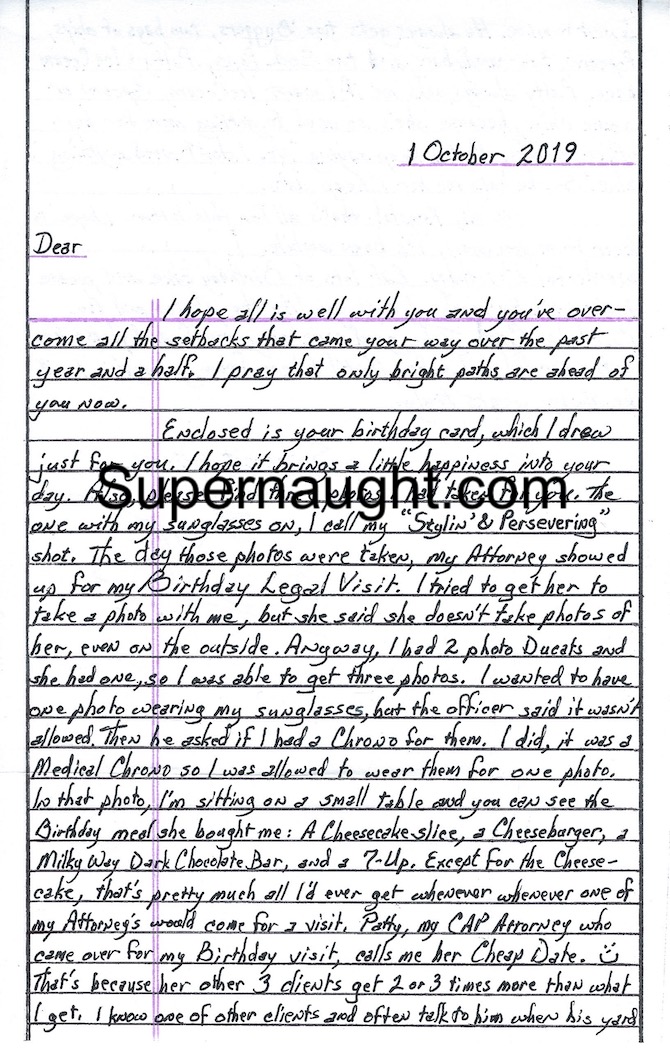 1 October 2019
Dear
I hope all is well with you and you've over-
come all the setbacks that came your way over the past
year and a half. I pray that only bright paths are ahead of
you now.
Enclosed is your birthday card, which I drew
just for you. I hope it brings a little happiness into your
day. Also, please find three photos I had taken for you. The
Supernaught.com
one with my sunglasses on, I call my "Stylin' & Persevering"
shot. The day those photos were taken, my Attorney showed
up for my Birthday Legal Visit. I tried to get her to
take a photo with me, but she said she doesn't take photos of
her, even on the outside. Anyway, I had 2 photo Ducats and
she had one, so I was able to get three photos. I wanted to have
one photo wearing my sunglasses, but the officer said it wasn't
allowed. Then he asked if I had a Chrono for them. I did, it was a
Medical Chrono so I was allowed to wear them for one photo.
In that photo, I'm sitting on a small table and you can see the
Birthday meal she bought me: A Cheesecake slice, a Cheeseburger, a
Milky Way Dark Chocolate Bar, and a 7-Up. Except for the Cheese-
cake, that's pretty much all I'd ever get whenever whenever one of
my Attorney's would come for a visit. Patty, my CAP Attorney who
came over for my Birthday visit, calls me her Cheap Date. ☺
That's because her other 3 clients get 2 or 3 times more than what
I get. I know one of other clients and often talk to him when his yard